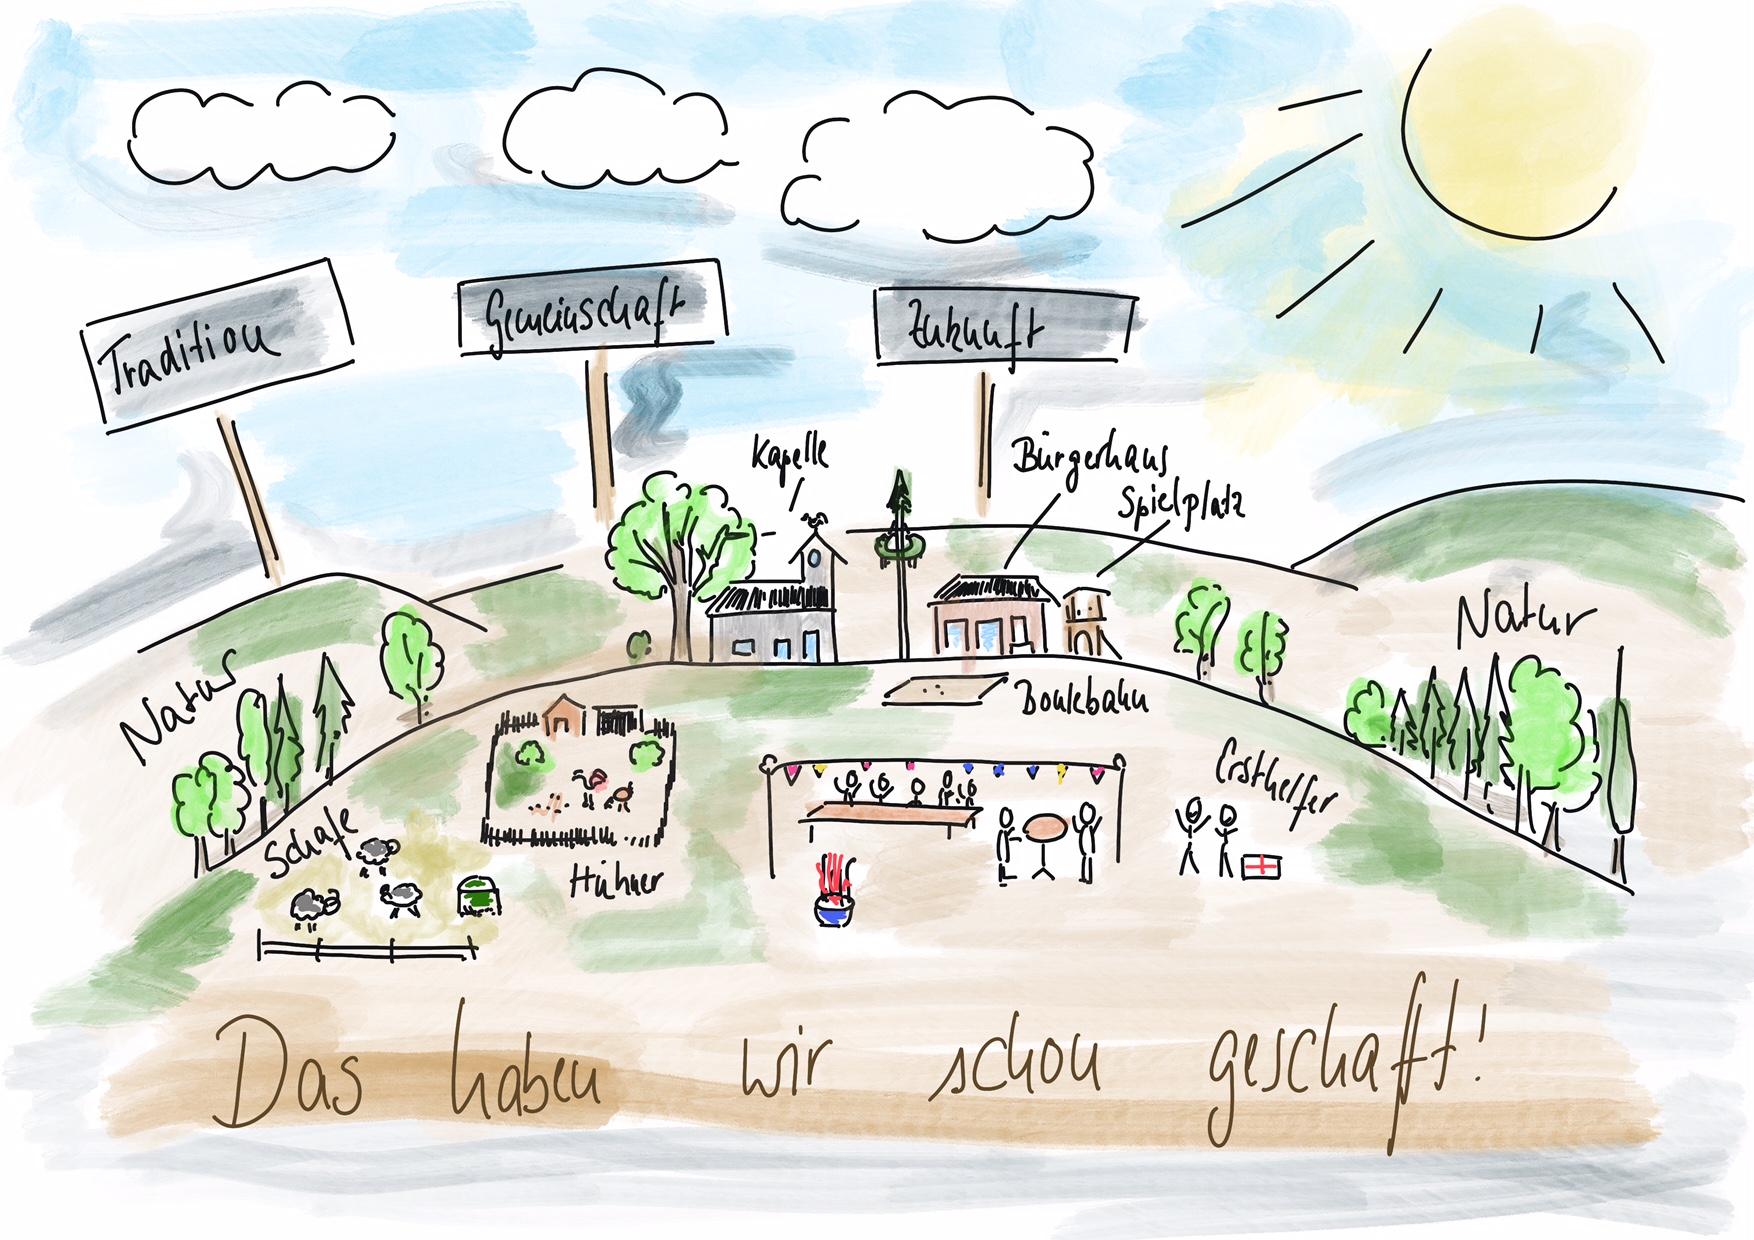 Tradition
Gemeinschaft
Zukunft
Kapelle
Bürgerhaus
Spielplatz
Natur
Natur
Boulebahn
Ersthelfer
Schafe
Hühner
Das haben wir schon geschafft!